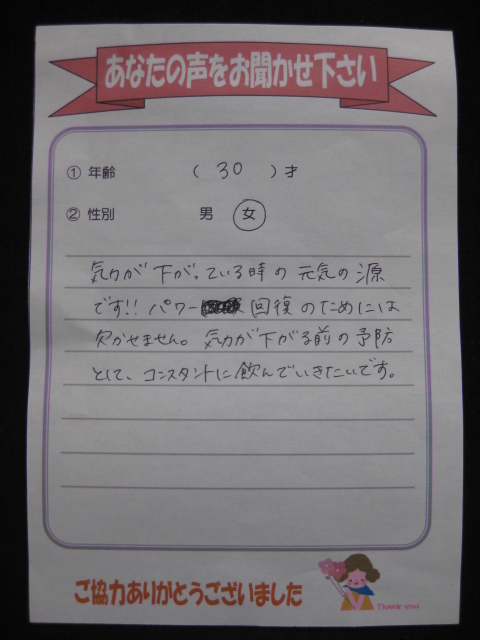 あなたの声をお聞かせ下さい
① 年齢 ( 30 ) 才
② 性別 男 女
気力が下がっている時の元気の源
です!! パワー 回復のためには
欠かせません。気力が下がる前の予防
として、コンスタントに飲んでいきたいです。
ご協力ありがとうございました
Thank you